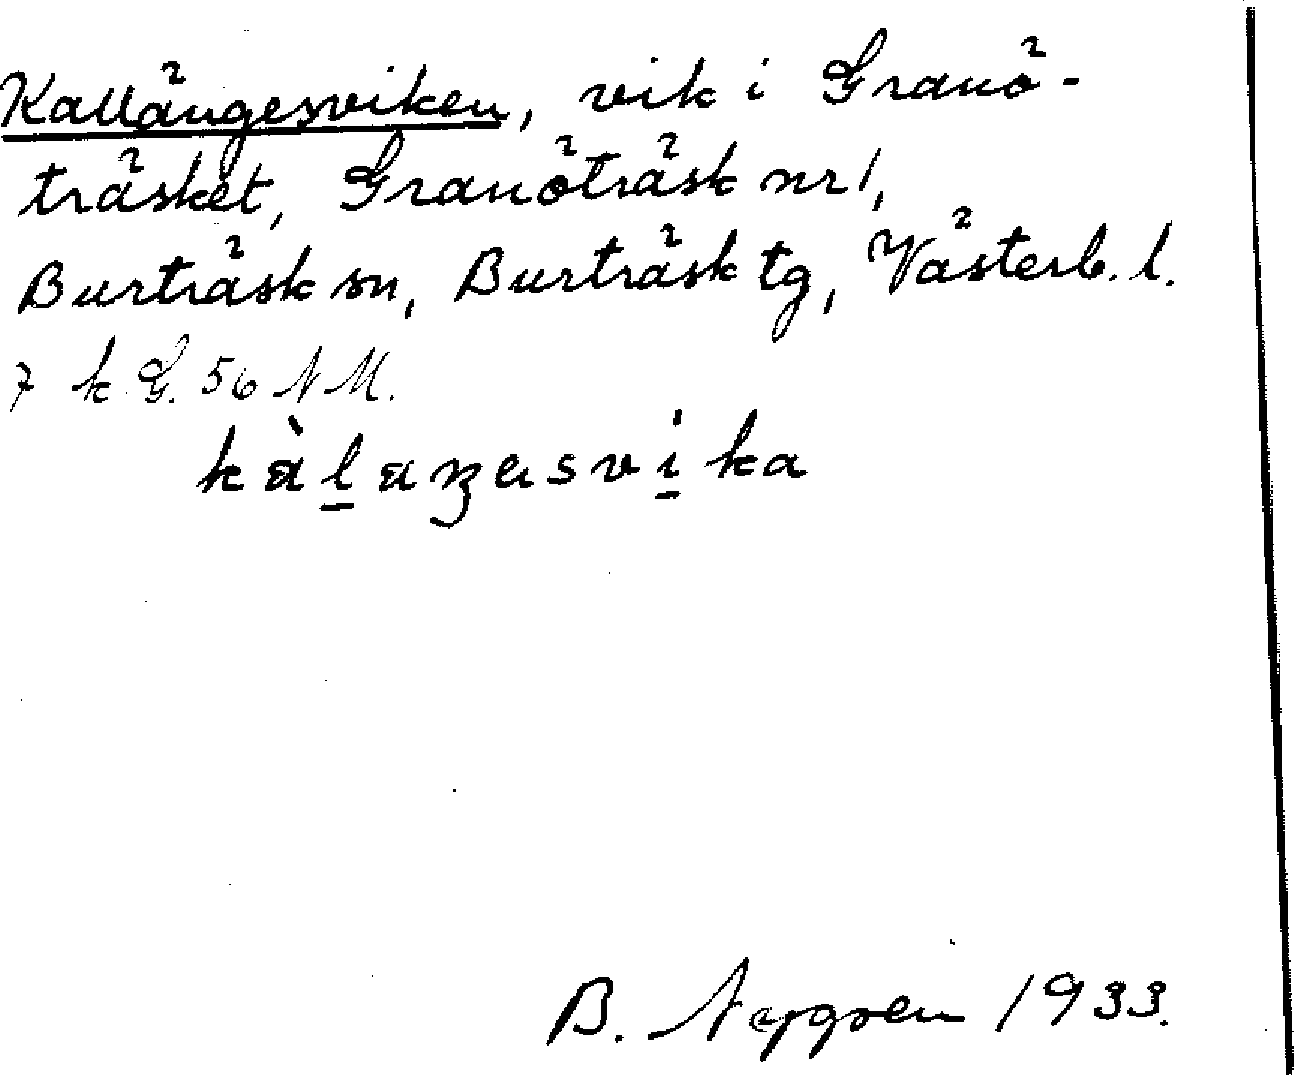 Kallängesviken, vik i Granö-
träsket, Granöträsk nr 1,
Burträsk sn, Burträsk tg, Västerb. l.
7 k G. 56 N M.
kàḻaŋasvi̱ka
B. Nygren 1933.